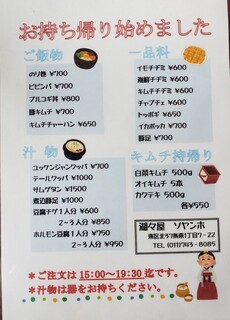 お持ち帰り始めました
ご飯物
のり巻 ¥700
ビビンバ ¥700
プルコギ丼 ¥800
豚キムチ ¥700
キムチチャーハン ¥650
一品料
イモチヂミ ¥600
海鮮チヂミ ¥600
キムチチヂミ ¥600
チャプチェ ¥600
トッポギ ¥650
イカポッカ ¥700
豚足 ¥700
汁物
ユッケジャンクッパ ¥700
テールクッパ ¥1000
サムゲタン ¥1500
煮込豚足 ¥1000
豆腐チゲ1人分 ¥600
2~3人前 ¥850
ホルモン豆腐1人分 ¥750
2~3人前 ¥950
キムチ持帰り
白菜キムチ 500g
オイキムチ 5本
カクテキ 500g
各¥550
ソヤンホ
TEL (011)743-8085
*ご注文は 15:00~19:30 迄です。
*汁物は器をお持ちください。